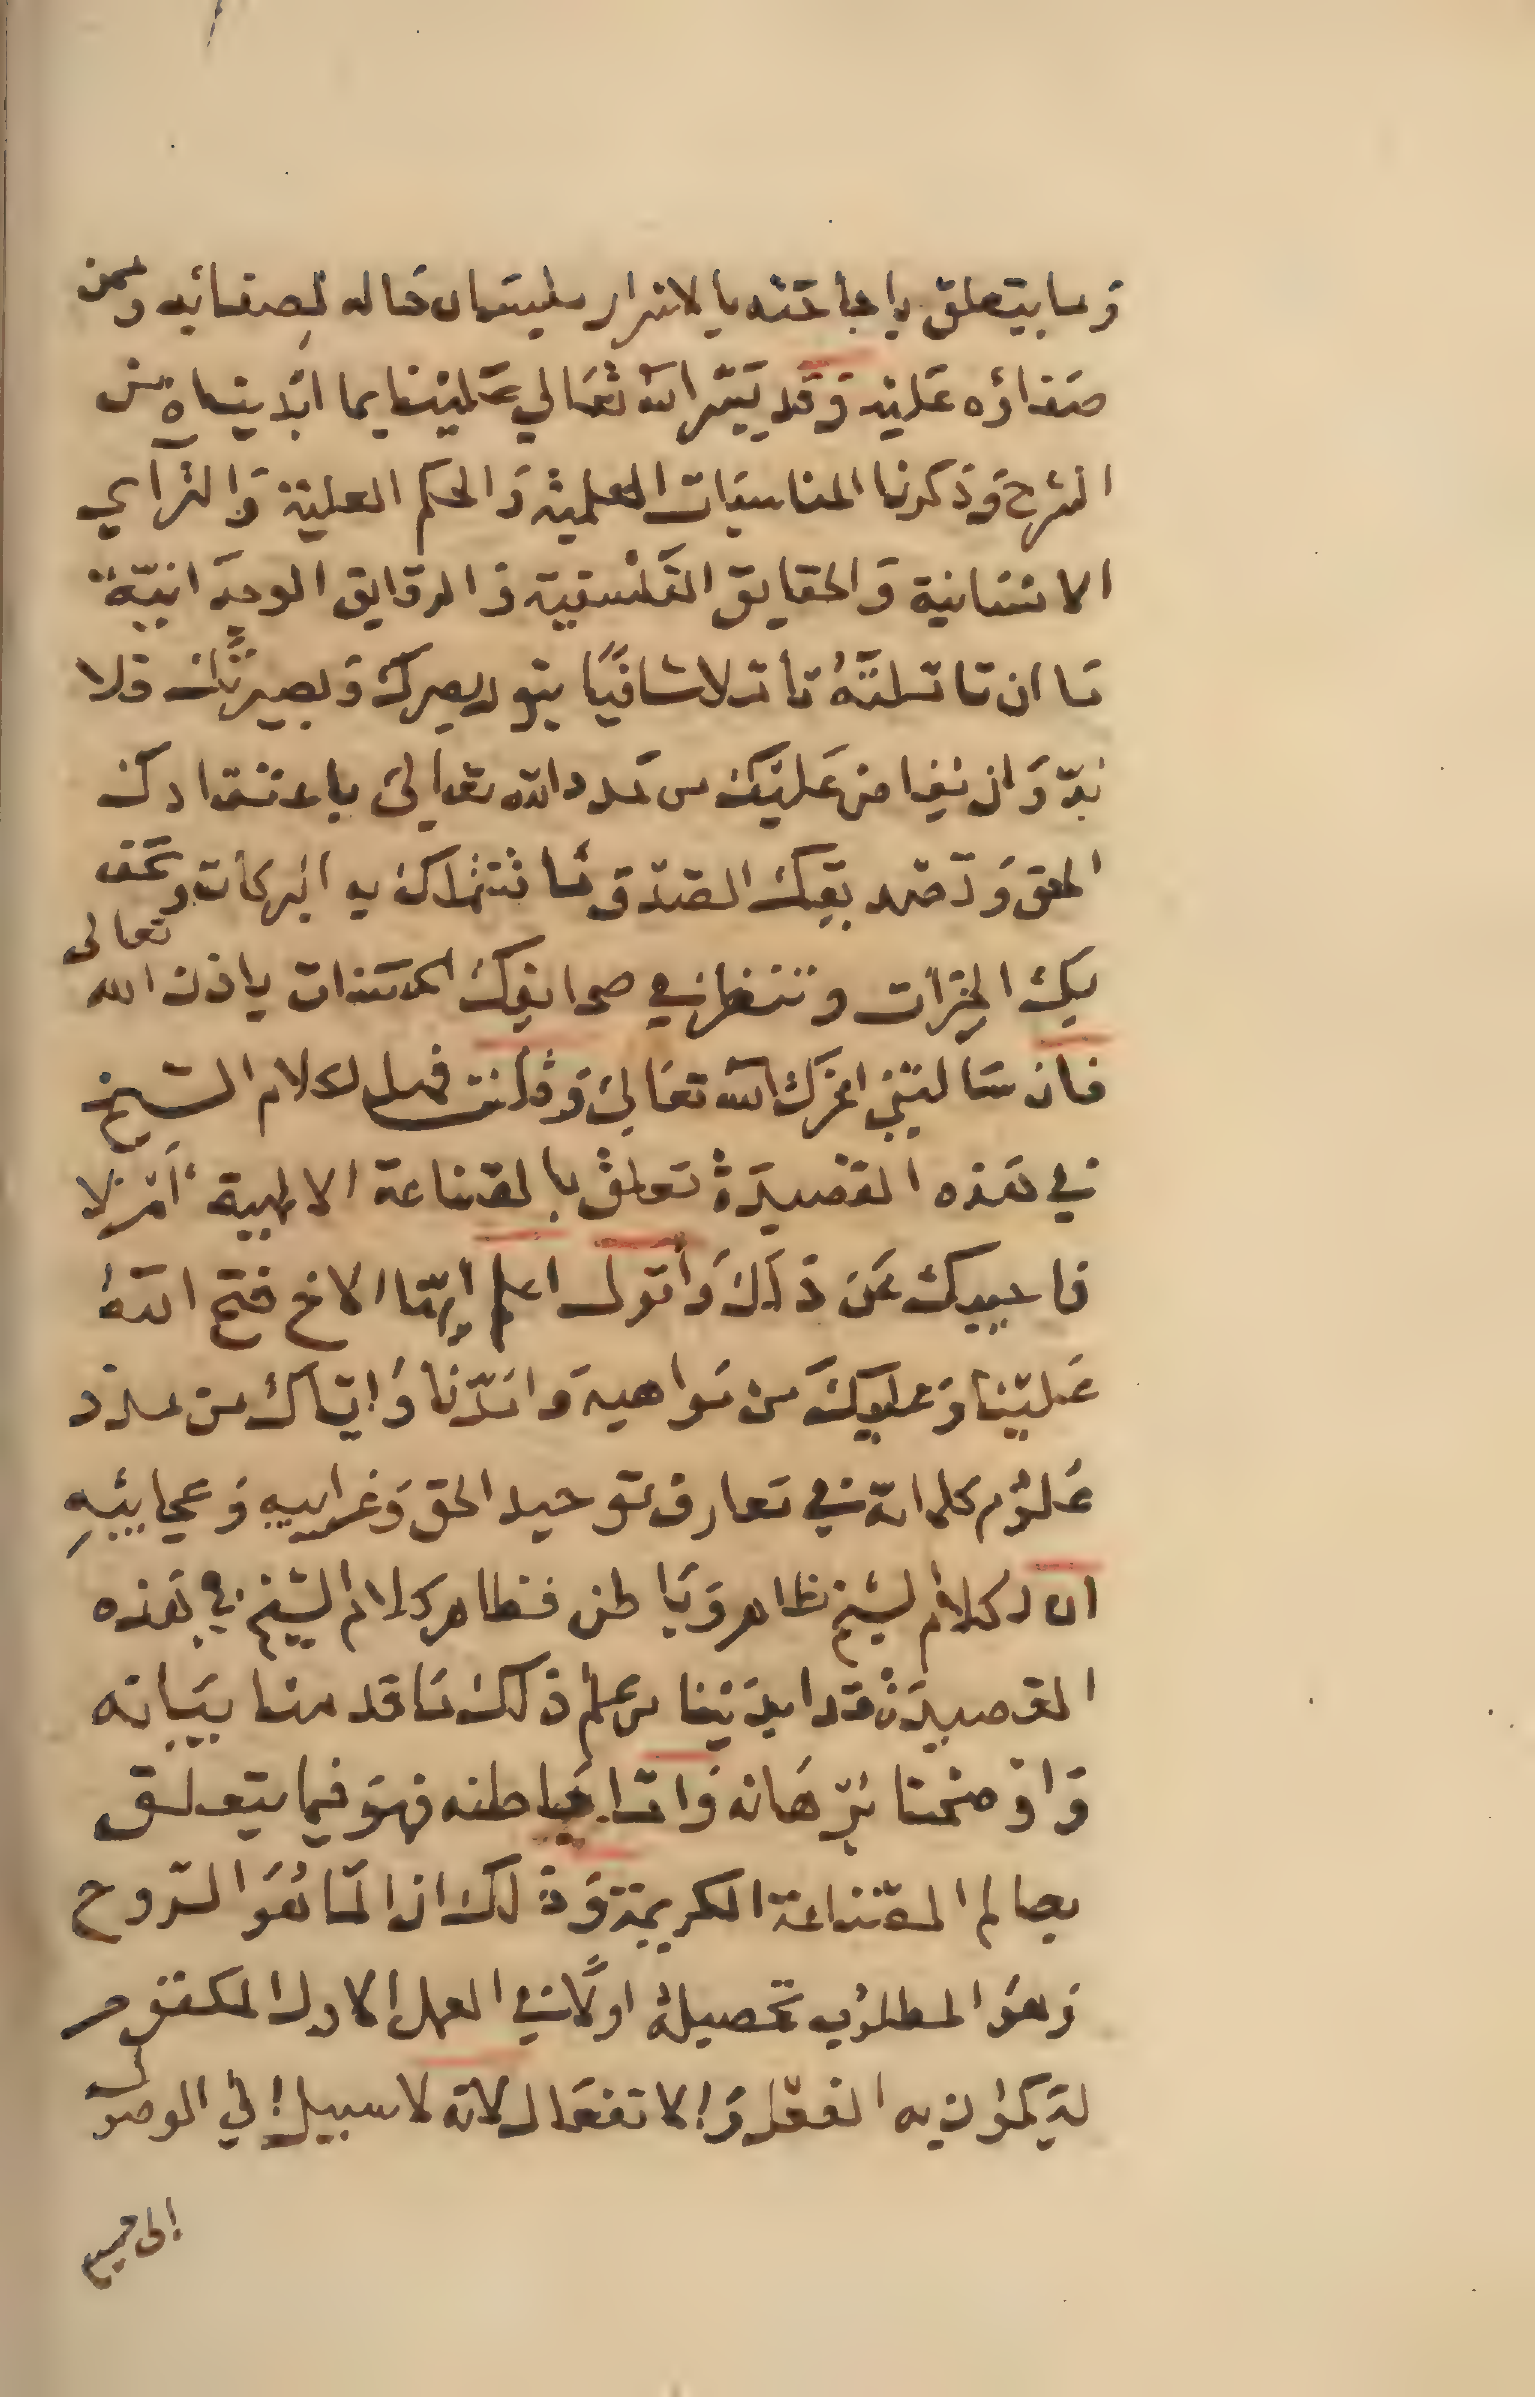 وما يتعلق باحاحته بالاسرار فليسمان حاله لصفائه وممن
صفاؤه عليه وقد يسر الله تعالى علينا بما ابديناه من
الشرح وذكرنا المناسبات العلمية والحكم العلية والترآي
الانسانية والحقايق القدسية والدقايق الوحدانية
ما ان تاملته تاملا شافيا ينور بصرك وبصيرتك فلا
بد وان يفاض عليك من مدد الله تعالى باعتقادك
الحق وقصد بقك الصدق ما تشملك به البركات وتحف
بك الخيرات وتنظر في صحايفك الحسنات باذن الله تعالى
فان سالتني اعزك الله تعالى وقلت فهل لكلام الشيخ
في هذه القصيدة تعلق بالصناعة الالهية ام لا
فاجيبك عن ذلك واقول اعلم ايها الاخ فتح الله
علينا وعليك من مواهبه وامدنا واياك من مدد
علوم كلماته في معارف توحيد الحق وغرايبه وعجائبه
ان لكلام الشيخ ظاهر وباطن فظاهر كلام الشيخ في هذه
القصيدة قد ابدينا من علم ذلك ما قد منا بيانه
واوضحنا برهانه واما باطنه فهو فيما يتعلق
بعالم الصناعة الكريمة وذلك ان الما هو الروح
وهو المطلوب تحصيله اولا في العمل الاول المكتوم
ليكون به الفعل والانفعال لانه لا سبيل الى الوصول
الى